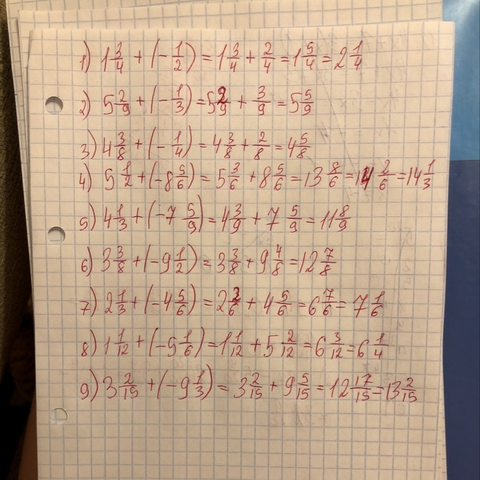 1) 1 3/4 + (- 1/2) = 1 3/4 + 2/4 = 1 5/4 = 2 1/4
2) 5 2/9 + (- 1/3) = 5 2/9 + 3/9 = 5 5/9
3) 4 3/8 + (- 1/4) = 4 3/8 + 2/8 = 4 5/8
4) 5 1/2 + (-8 5/6) = 5 3/6 + 8 5/6 = 13 8/6 = 14 2/6 = 14 1/3
5) 4 1/3 + (-7 5/9) = 4 3/9 + 7 5/9 = 11 8/9
6) 3 3/8 + (-9 1/2) = 3 3/8 + 9 4/8 = 12 7/8
7) 2 1/3 + (-4 5/6) = 2 2/6 + 4 5/6 = 6 7/6 = 7 1/6
8) 1 1/12 + (-5 1/6) = 1 1/12 + 5 2/12 = 6 3/12 = 6 1/4
9) 3 2/15 + (-9 1/3) = 3 2/15 + 9 5/15 = 12 17/15 = 13 2/15